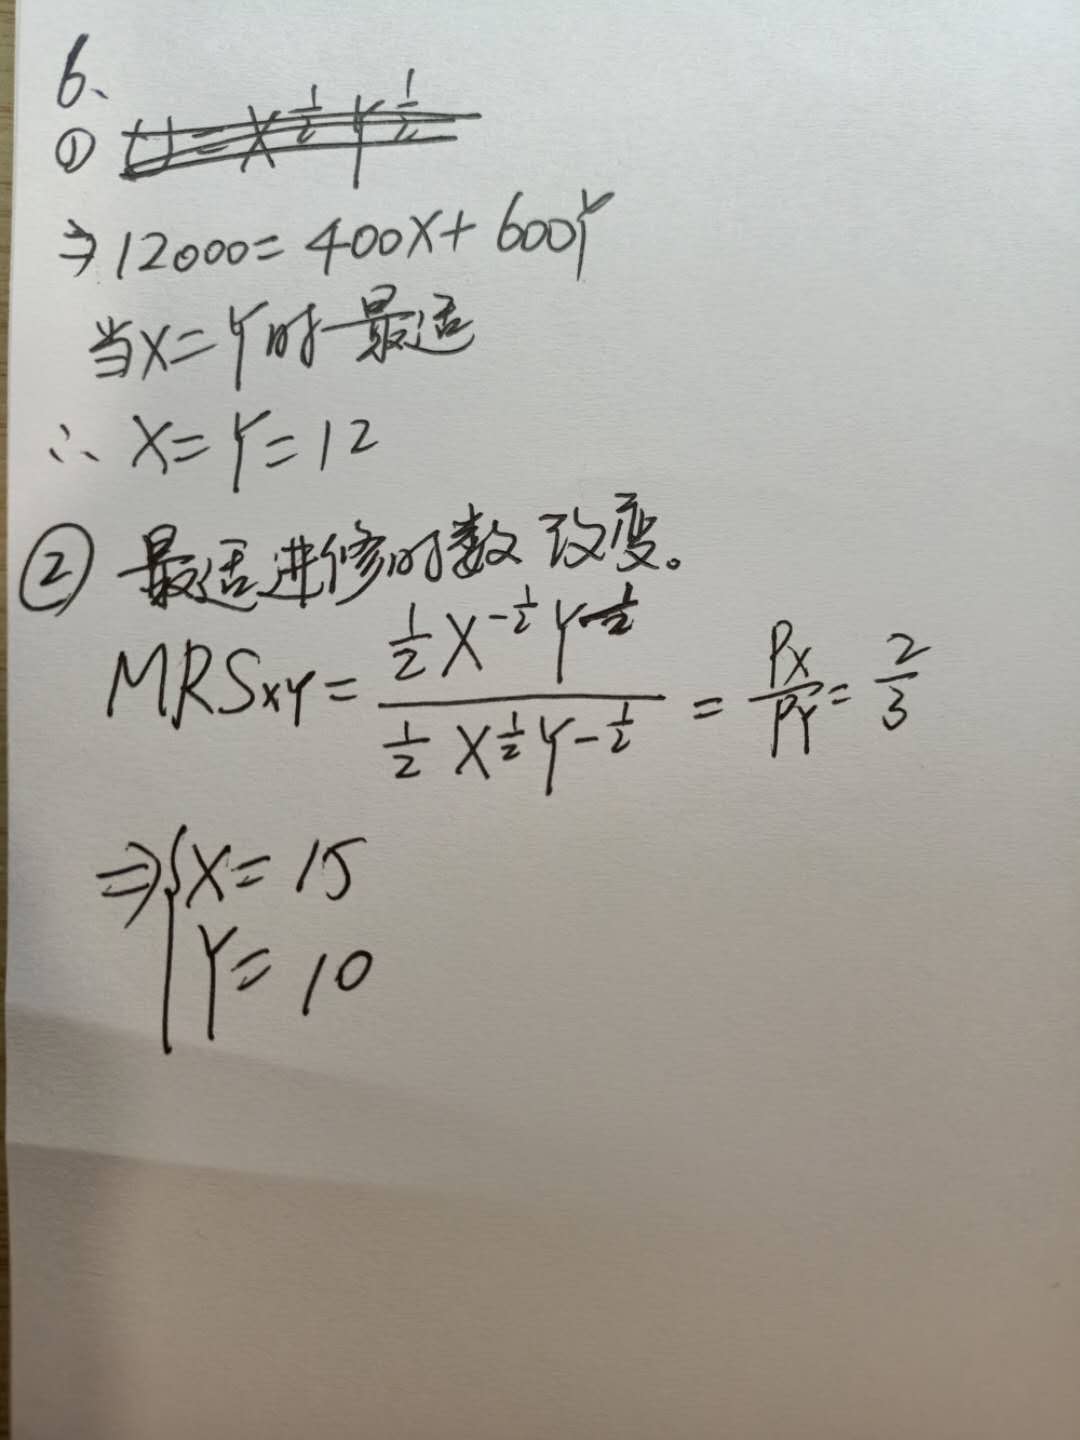 6、
① U = X^{\frac{1}{2}} Y^{\frac{1}{2}}
⇒ 12000 = 400X + 600Y
当X = Y时最适
∴ X = Y = 12
② 最适进修时数改变。
MRS_{XY} = \frac{\frac{1}{2} X^{-\frac{1}{2}} Y^{\frac{1}{2}}}{\frac{1}{2} X^{\frac{1}{2}} Y^{-\frac{1}{2}}} = \frac{P_X}{P_Y} = \frac{2}{3}
⇒ { X = 15
Y = 10